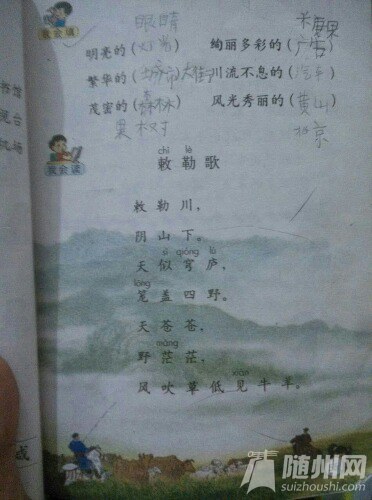 我会填
眼睛
明亮的（灯光） 绚丽多彩的（广告）
繁华的（城市）大街 川流不息的（汽车）
茂密的（森林） 风光秀丽的（黄山）
北京
书馆
台
机场
我会读
chì lè
敕勒歌
敕勒川，
阴山下。
sì qióng lú
天似穹庐，
lǒng
笼盖四野。
天苍苍，
máng
野茫茫，
xiàn
风吹草低见牛羊。
成
随州网
suizhoushi.com